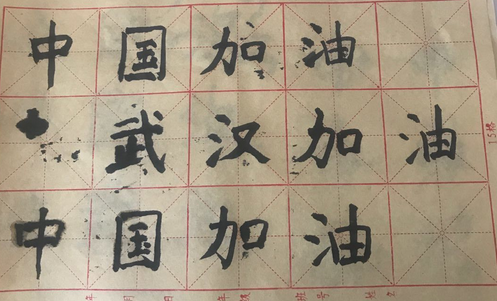 中国加油
武汉加油
中国加油